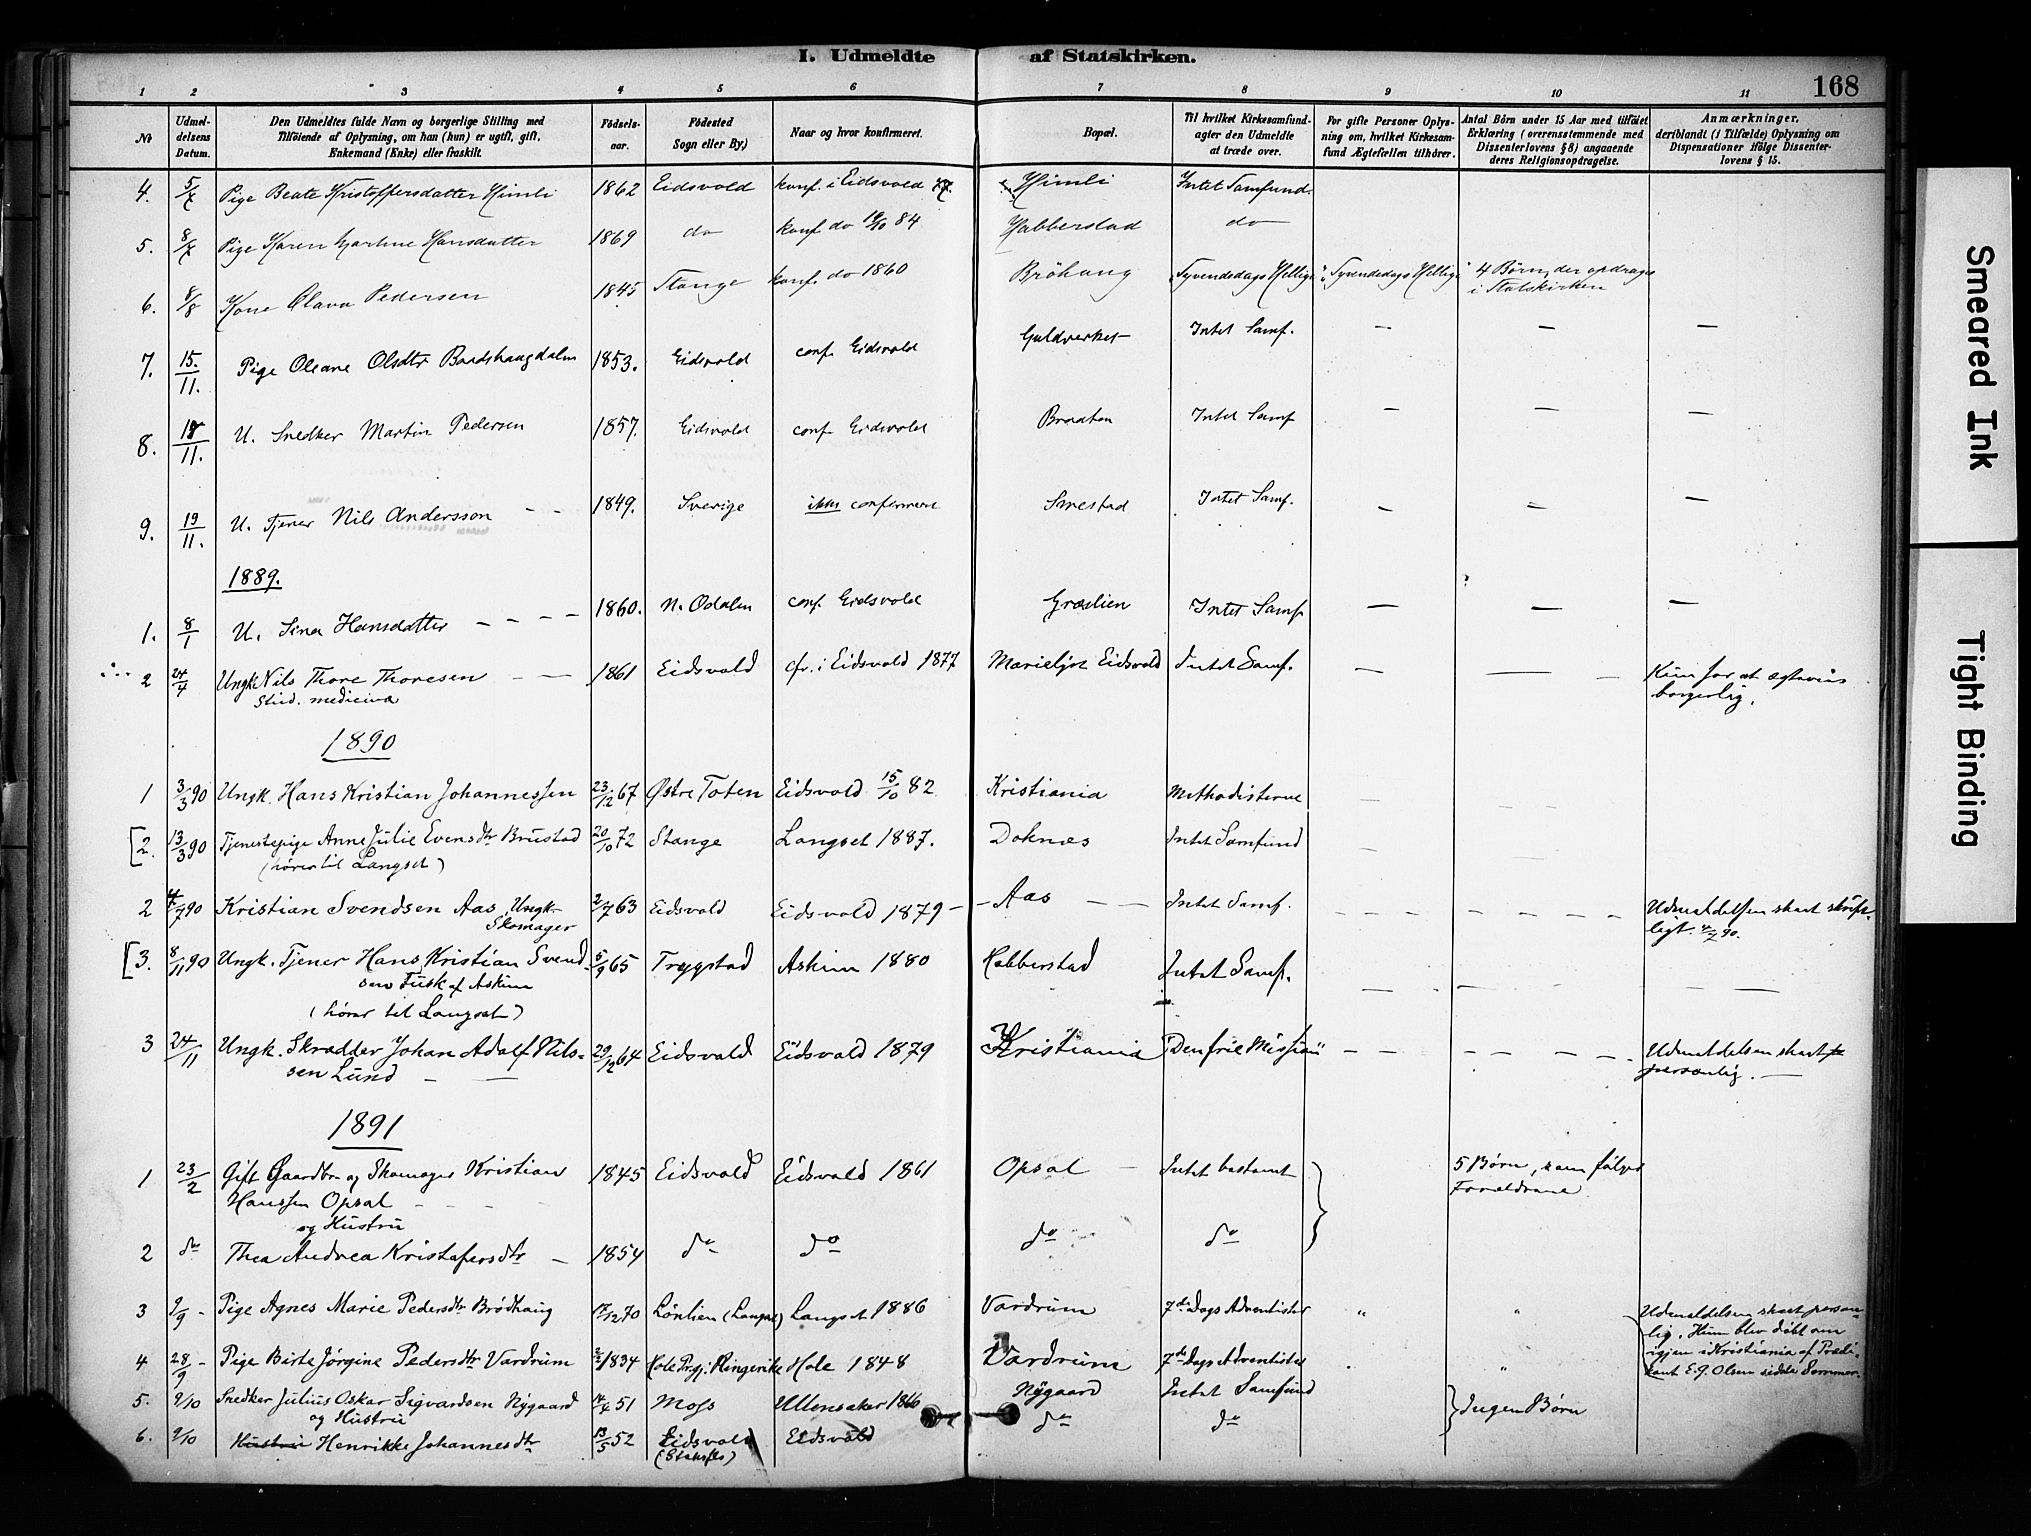 I. Udmeldte af Statskirken.
168
1 2 3 4 5 6 7 8 9 10 11
No
Udmel-
delsens
Datum.
Den Udmeldtes fulde Navn og borgerlige Stilling med
Tilföiende af Oplysning, om han (hun) er ugift, gift,
Enkemand (Enke) eller fraskilt.
Födsels-
aar.
Födested
Sogn eller By.)
Naar og hvor konfirmeret.
Bopæl.
Til hvilket Kirkesamfund-
agter den Udmeldte
at træde over.
For gifte Personer Oplys-
ning om, hvilket Kirkesam-
fund Ægtefællen tilhörer.
Antal Börn under 15 Aar med tilföiet
Erklæring (overensstemmende med
Dissenterlovens § 8) angaaende
deres Religionsopdragelse.
Anmærkninger,
deriblandt (i Tilfælde) Oplysning om
Dispensationer ifölge Dissenter-
lovens § 15.
4. 5/7 Pige Beate Kristoffersdatter Himli 1862 Eidsvold konf. i Eidsvold Himli Intet Samfund.
5. 8/7 Pige Karen Martine Hansdatter 1869 do konf. do 19/10 84 Habberstad do
6. 8/8 Kone Olava Pedersen 1845 Stange konf. do 1860 Bröhaug "Syvendedags Hellige" "Syvendedags Hellige" 4 Börn, der opdrages
i Statskirken
7. 15/11. Pige Oleane Olsdtr Baadshaugdalen 1853. Eidsvold conf. Eidsvold Guldverket Intet Samf. — — —
8. 18/11. U. Snedker Martin Pedersen 1857. Eidsvold conf. Eidsvold Braaten Intet Samf — — —
9. 19/11. U. Tjener Nils Andersson - - 1849. Sverige ikke confirmeret Smestad Intet Samf. — — —
1889.
1. 8/1 U. Sina Hansdatter - - - - 1860. N. Odalen conf. Eidsvold Græslien Intet Samf. — — —
2 24/4 Ungk. Nils Thore Thoresen - — 1861 Eidsvold cfr. i Eidsvold 1877 Marielyst Eidsvold Intet Samf. — — - Kun for at ægtevies
Stud. medicina borgerlig.
1890
1 3/3 90 Ungk. Hans Kristian Johannessen 23/12 67 Østre Toten Eidsvold 15/10 82 Kristiania Methodisterne —
[2. 13/3 90 Tjenestepige Anne Julie Evensdtr Brustad 20/10 72 Stange Langset 1887. Doknes Intet Samfund —
(hører til Langset)
2 4/7 90 Kristian Svendsen Aas, Ungk. 2/7 63 Eidsvold Eidsvold 1879 - - Aas - - Intet Samf. - - - - - - - - Udmeldelsen skeet skrift-
Skomager ligt. 4/7 90.
[3. 8/11 90 Ungk. Tjener Hans Kristian Svend- 5/9 65 Trygstad Askim 1880 Habberstad Intet Samf. — — —
sen Fusk af Askim
(hører til Langset)
3 24/11 Ungk. Skrædder Johan Adolf Nils- 29/12 64 Eidsvold Eidsvold 1879 Kristiania "Den frie Mission" - - - - - - - Udmeldelsen skeet
sen Lund - — personlig. —
1891
1 23/2 Gift Gaardbr. og Skomager Kristian 1845 Eidsvold Eidsvold 1861 Opsal - Intet bestemt 5 Børn, som følger
Hanssen Opsal - - - - Forældrene
og Hustru
2 do Thea Andrea Kristofersdtr - 1854 do do do do
3 9/9 - Pige Agnes Marie Pedersdtr Brødhaug 17/12 70 Lønlien (Langset) Langset 1886 Vardrum 7de Dags Adventister " " Udmeldelsen skeet person-
lig. Hun blev døbt om
4 28/9 - Pige Birte Jørgine Pedersdtr Vardrum 2/2 1834 Hole Prgj. Ringerike Hole 1848 Vardrum 7de Dags Adventister . " igjen i Kristiania af Prædi-
kant E.G. Olsen sidste Sommer.
5. 9/10 Snedker Julius Oskar Sigvardsen Nygaard 14/4 51 Moss Ullensaker 1866 Nygaard Intet Samfund Ingen Børn
og Hustru
6. 9/10 Hustru Henrikke Johannesdtr 13/5 52 Eidsvold Eidsvold do do
Smeared Ink
Tight Binding